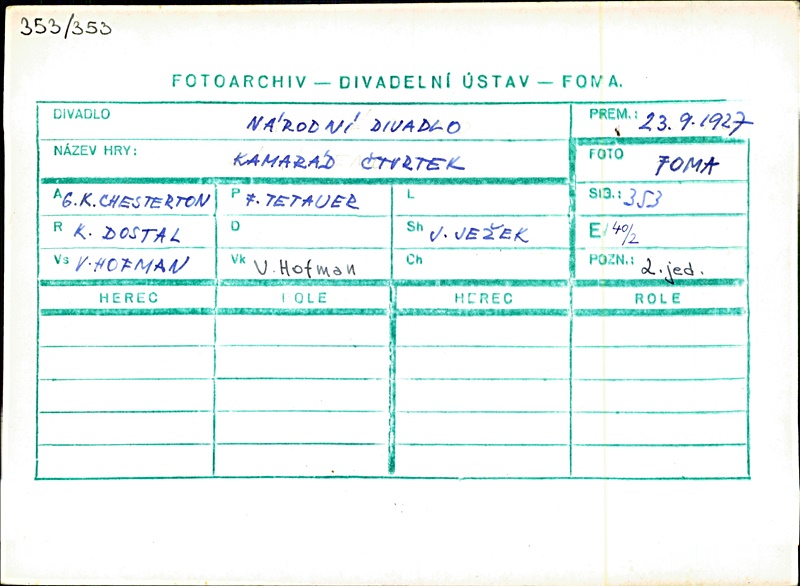 353/353
FOTOARCHIV — DIVADELNÍ ÚSTAV — FOMA.
DIVADLO NÁRODNÍ DIVADLO PREM.: 23.9.1927
NÁZEV HRY: KAMARÁD ČTVRTEK FOTO FOMA
A G.K.CHESTERTON P F. TETAUER L SIG.: 353
R K. DOSTAL D Sh J. JEŽEK E/ 40/2
Vs V. HOFMAN Vk V. Hofman Ch POZN.: 2. jed.
HEREC ROLE HEREC ROLE